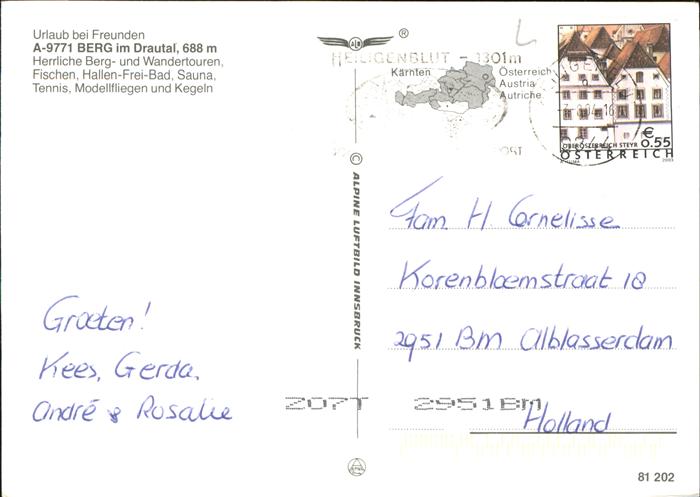 Urlaub bei Freunden
A-9771 BERG im Drautal, 688 m
Herrliche Berg- und Wandertouren,
Fischen, Hallen-Frei-Bad, Sauna,
Tennis, Modellfliegen und Kegeln
®
HEILIGENBLUT - 1301m
Kärnten
Österreich
Austria
Autriche
€
0.55
OBERÖSTERREICH STEYR
ÖSTERREICH
2003
© ALPINE LUFTBILD INNSBRUCK
Fam. H. Cornelisse
Korenbloemstraat 18
2951 BM Alblasserdam
Holland
Groeten!
Kees, Gerda,
André & Rosalie
207T 2951BM
81 202